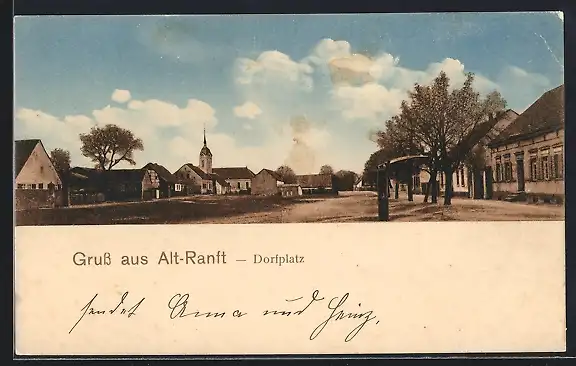 Gruß aus Alt-Ranft — Dorfplatz
sendet Anna und Heinz.